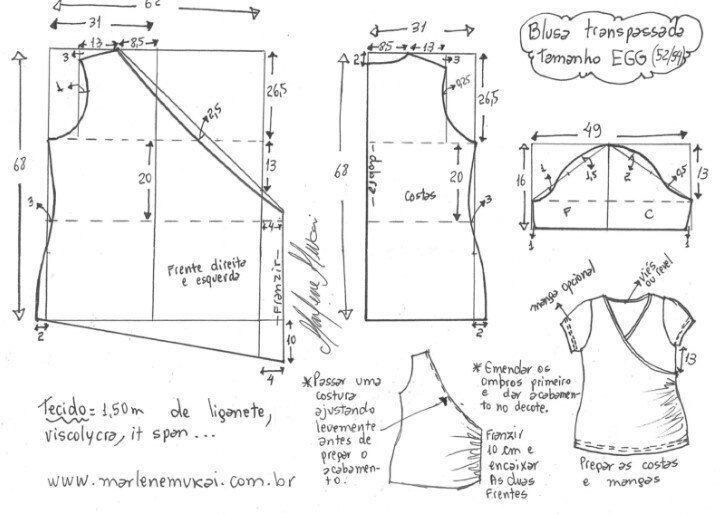 62
31
13
8,5
3
1
2,5
26,5
68
20
13
3
4
Frente direita
e esquerda
Franzir
2
10
4
Marlene Mukai
31
8,5
13
2
3
0,25
26,5
68
dobra
20
Costas
3
2
Blusa transpassada
Tamanho EGG (52/54)
49
16
1
1,5
2
0,5
13
F
C
1
1
manga opcional
viés
ou revel
13
Preparar as costas
e mangas
*Passar uma
costura
ajustando
levemente
antes de
prepar o
acabamen-
to.
*Emendar os
ombros primeiro
e dar acabamen-
to no decote.
Franzir
10 cm e
encaixar
As duas
frentes
Tecido = 1,50m de liganete,
viscolycra, it span...
www.marlenemukai.com.br